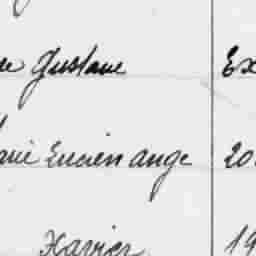 Gustave Ex
Lucien ange 20
Xavier 19